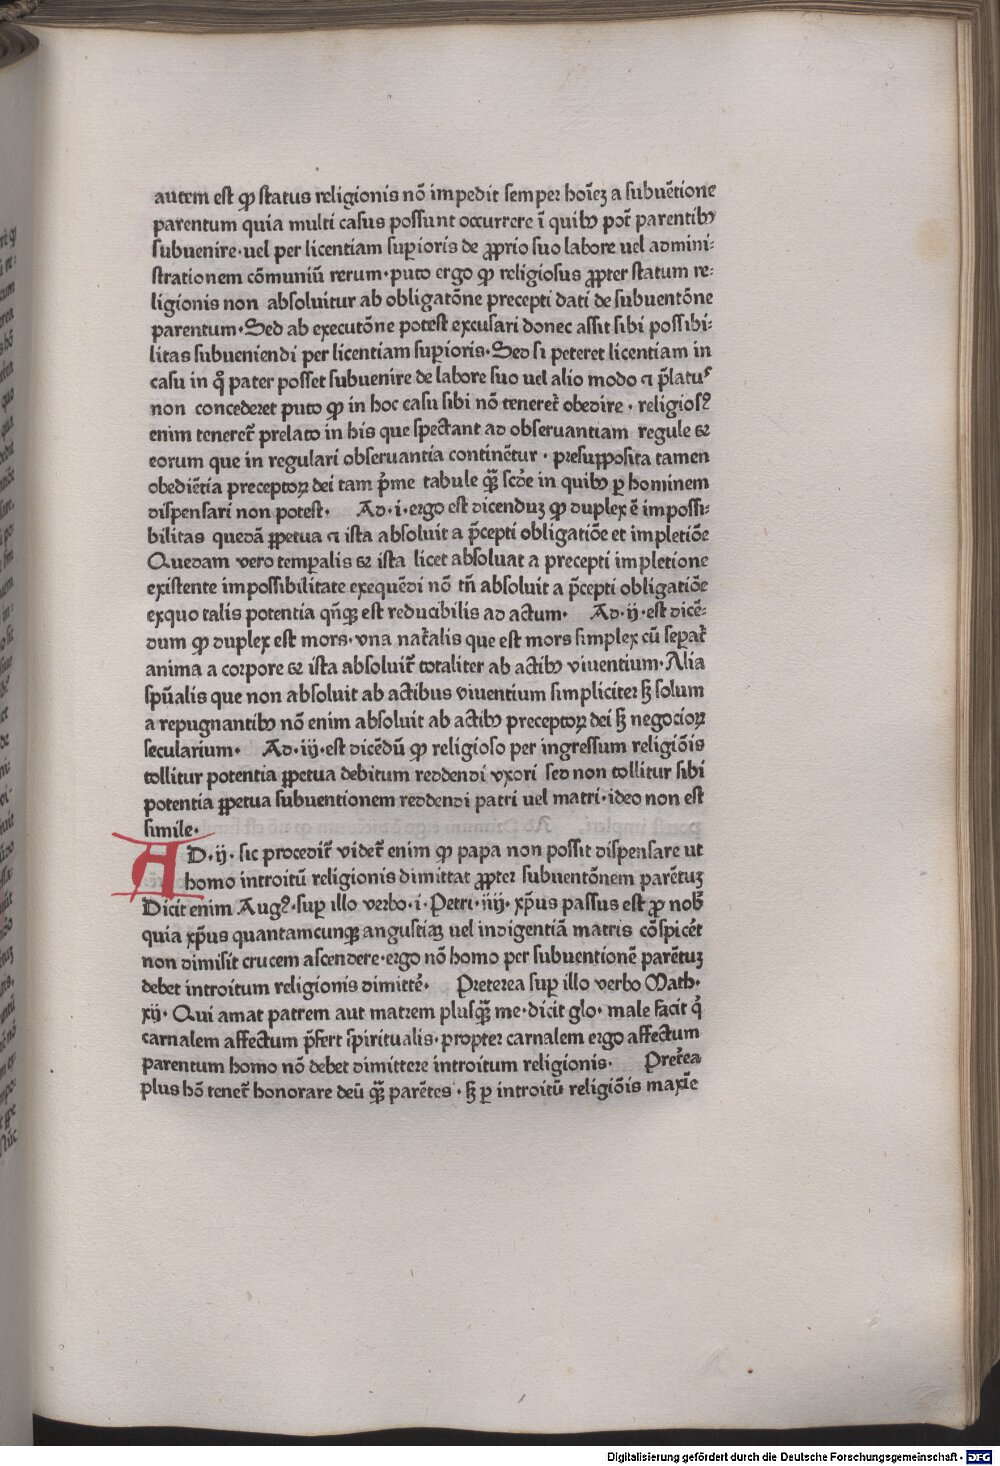 autem est ꝙ status religionis nō impedit semper hoīeꝫ a subuētione
parentum quia multi casus possunt occurrere ī quibꝰ pot̄ parentibꝰ
subuenire·uel per licentiam suꝑioris de ꝓprio suo labore uel admini⸗
strationem cōmuniū rerum·puto ergo ꝙ religiosus ꝓpter statum re⸗
ligionis non absoluitur ab obligatōne precepti dati de subuentōne
parentum·Sed ab executōne potest excusari donec assit sibi possibi⸗
litas subueniendi per licentiam suꝑioris·Sed si peteret licentiam in
casu in qͦ pater posset subuenire de labore suo uel alio modo ⁊ p̄latuˢ
non concederet puto ꝙ in hoc casu sibi nō teneret᷑ obedire · religiosꝰ
enim teneret᷑ prelato in his que spectant ad obseruantiam regule et
eorum que in regulari obseruantia continētur · presupposita tamen
obediētia preceptoꝝ dei tam p̄me tabule qͣ̄ scd̄e in quibꝰ ꝑ hominem
dispensari non potest· Ad·i·ergo est dicenduꝫ ꝙ duplex ē impossi⸗
bilitas quedā ꝑpetua ⁊ ista absoluit a p̄cepti obligatiōe et impletiōe
Quedam vero temꝑalis et ista licet absoluat a precepti impletione
existente impossibilitate exequēdi nō tn̄ absoluit a p̄cepti obligatiōe
exquo talis potentia qn̄qꝫ est reducibilis ad actum· Ad·ij·est dicē⸗
dum ꝙ duplex est mors·vna nat᷑alis que est mors simplex cū seꝑat᷑
anima a corpore et ista absoluit᷑ totaliter ab actibꝰ viuentium·Alia
spūalis que non absoluit ab actibus viuentium simpliciter sꝫ solum
a repugnantibꝰ nō enim absoluit ab actibꝰ preceptoꝝ dei sꝫ negocioꝝ
secularium· Ad·iij·est dicēdū ꝙ religioso per ingressum religiōis
tollitur potentia ꝑpetua debitum reddendi vxori sed non tollitur sibi
potentia ꝑpetua subuentionem reddendi patri uel matri·ideo non est
simile·
AD·ij·sic procedit᷑ videt᷑ enim ꝙ papa non possit dispensare ut
homo introitū religionis dimittat ꝓpter subuentōnem parētuꝫ
Dicit enim Augꝰ·suꝑ illo verbo·i·Petri·iiij·xp̄us passus est ꝓ nob̄
quia xp̄us quantamcunqꝫ angustiaꝫ uel indigentiā matris cōspicēt
non dimisit crucem ascendere·ergo nō homo per subuentionē parētuꝫ
debet introitum religionis dimitte᷑· Preterea suꝑ illo verbo Math·
xij·Qui amat patrem aut matrem plusqͣ̄ me·dicit glo·male facit qͥ
carnalem affectum p̄fert spiritualis·propter carnalem ergo affectum
parentum homo nō debet dimittere introitum religionis· Pret᷑ea
plus hō tenet᷑ honorare deū qͣ̄ parētes·sꝫ ꝑ introitū religiōis maxīe
Digitalisierung gefördert durch die Deutsche Forschungsgemeinschaft · DFG